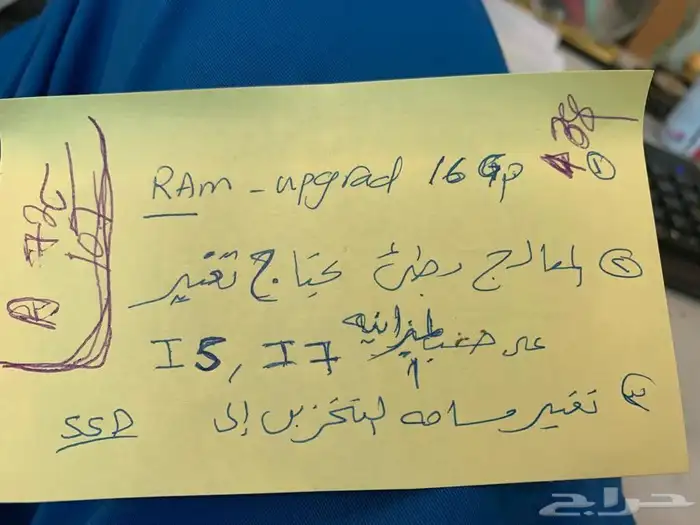 ① RAM - upgrad 16 Gp
② المعالج بطئ يحتاج تغيير
على حسب الميزانيه I5, I7
③ تغيير مساحه التخزين إلى SSD
حراج